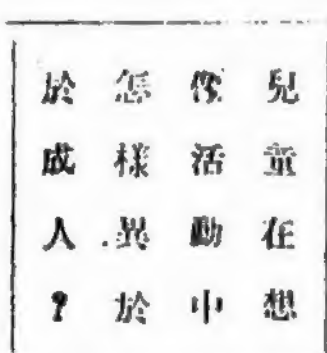 兒童在想
像活動中
怎樣異於
於成人？